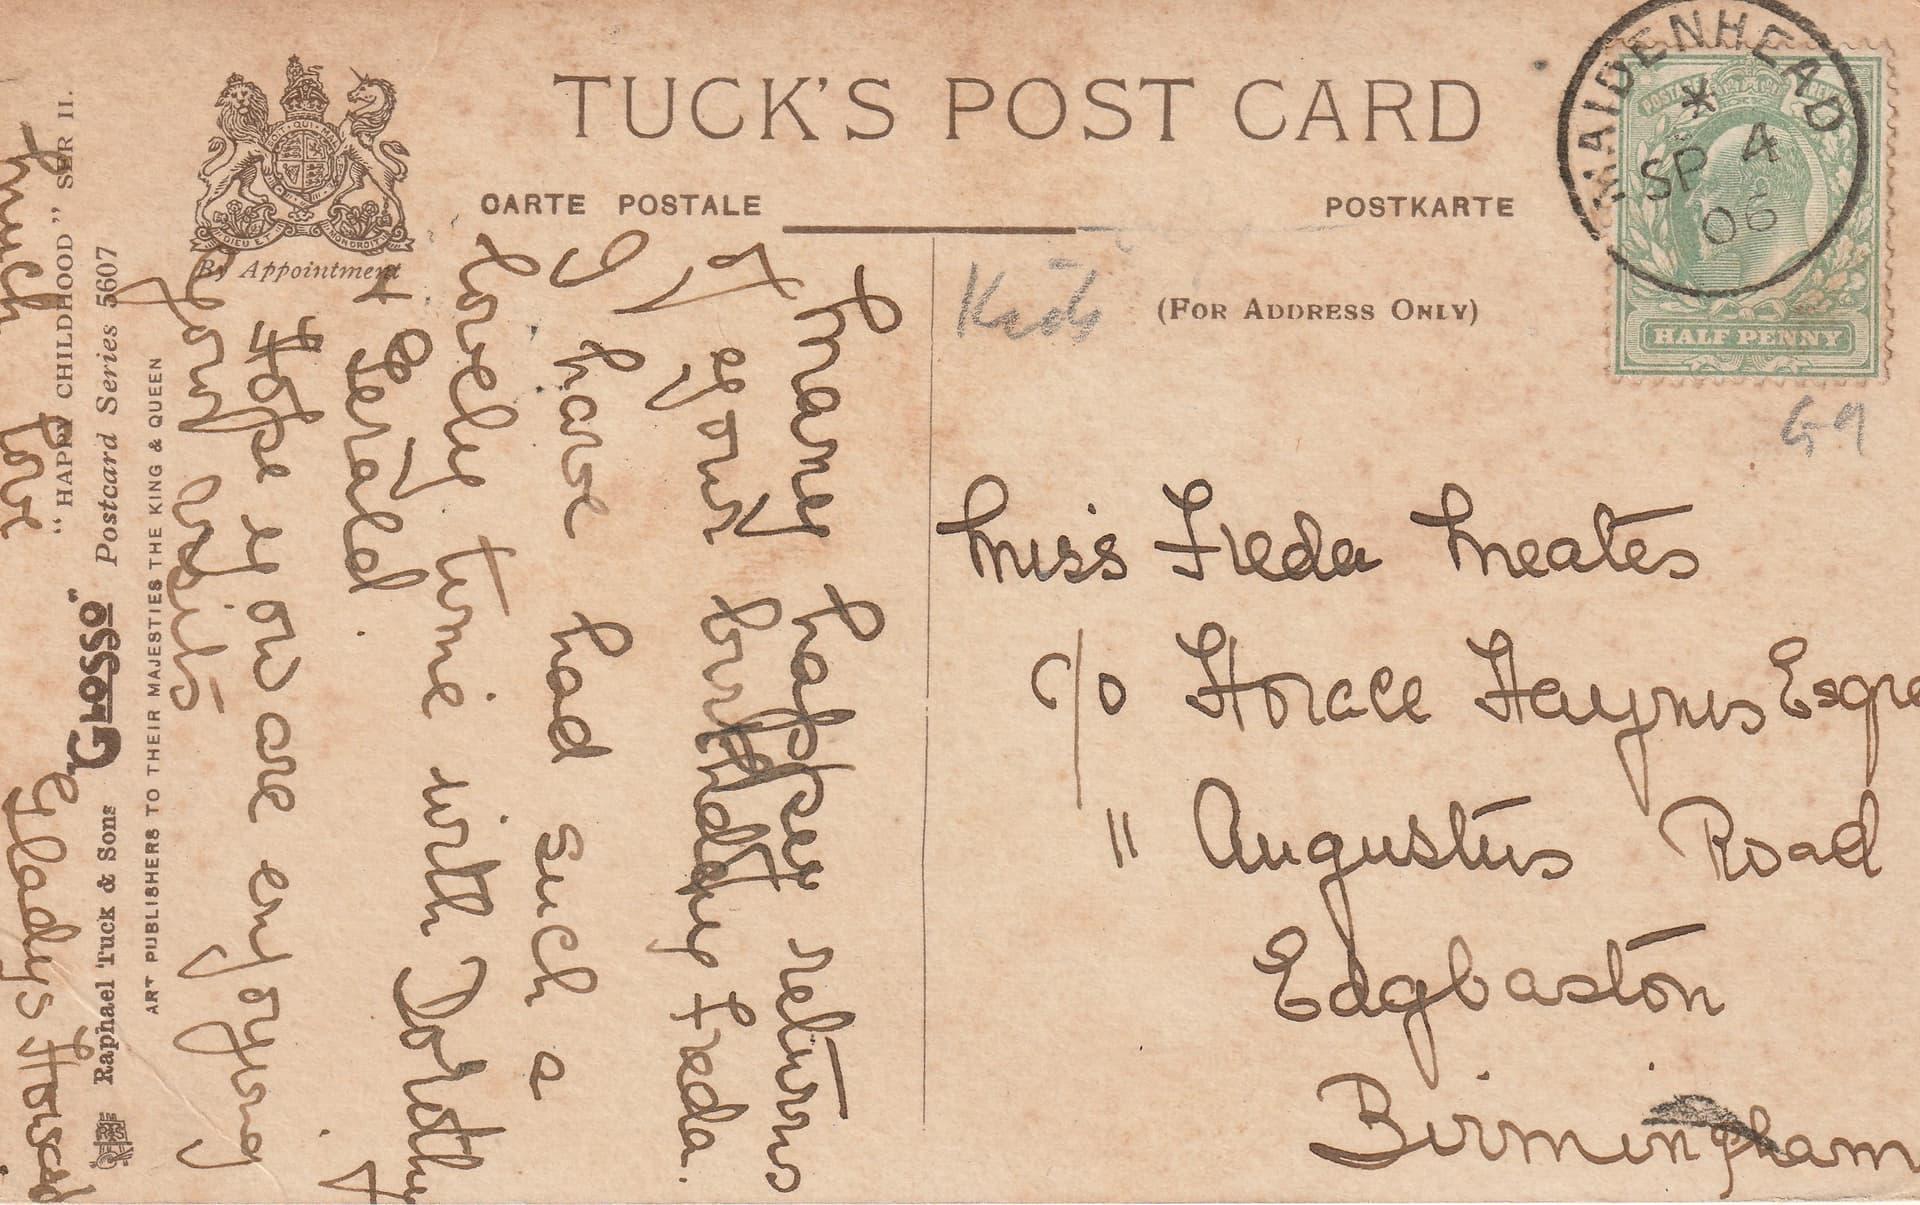 TUCK'S POST CARD
CARTE POSTALE
POSTKARTE
(FOR ADDRESS ONLY)
By Appointment
DIEU ET MON DROIT
MAIDENHEAD
*
SP 4
06
POSTAGE REVENUE
HALF PENNY
Kids
G9
Miss Freda Meates
c/o Horace Haynes Esqre
11 Augustus Road
Edgbaston
Birmingham
Many happy returns
of your birthday Freda.
I have had such a
lovely time with Dorothy
& Gerald.
Hope you are enjoying
your visits
Much love
Gladys
ART PUBLISHERS TO THEIR MAJESTIES THE KING & QUEEN
Raphael Tuck & Sons' "GLOSSO" Postcard Series 5607
"HAPPY CHILDHOOD" SER II.